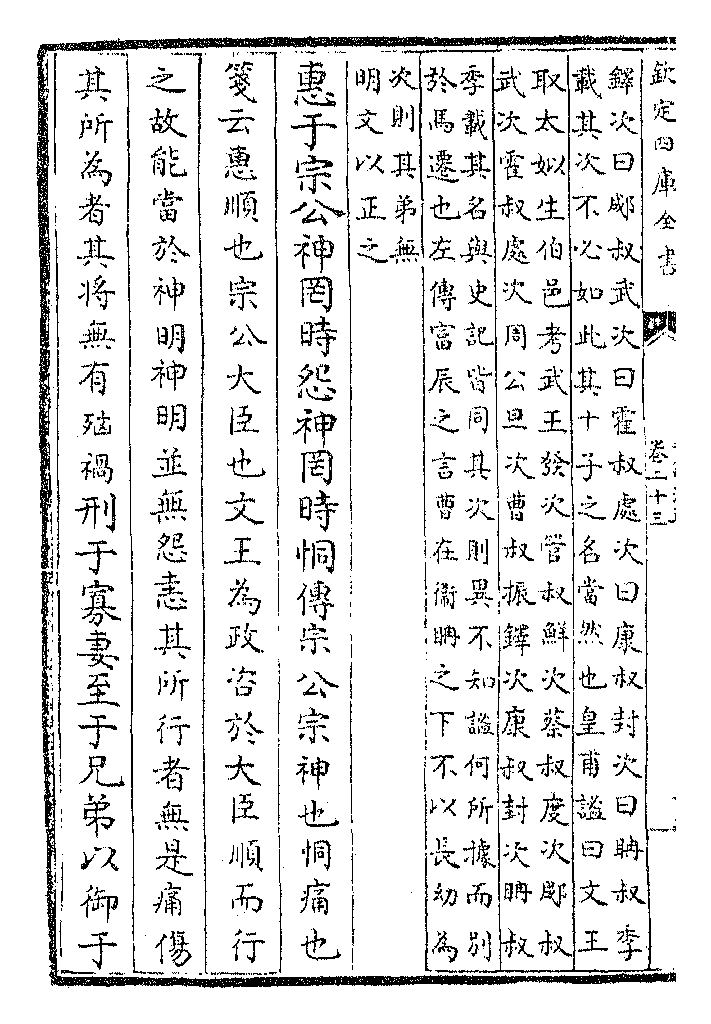 欽定四庫全書
卷二十三
鐸次曰郕叔武次曰霍叔處次曰康叔封次曰聃叔季
載其次不必如此其十子之名當然也皇甫謐曰文王
取太姒生伯邑考武王發次管叔鮮次蔡叔度次郕叔
武次霍叔處次周公旦次曹叔振鐸次康叔封次聃叔
季載其名與史記皆同其次則異不知謐何所據而別
於馬遷也左傳富辰之言曹在衞聃之下不以長幼為
次則其弟無
明文以正之
惠于宗公神罔時怨神罔時恫傳宗公宗神也恫痛也
箋云惠順也宗公大臣也文王為政咨於大臣順而行
之故能當於神明神明並無怨恚其所行者無是痛傷
其所為者其將無有殃禍刑于寡妻至于兄弟以御于